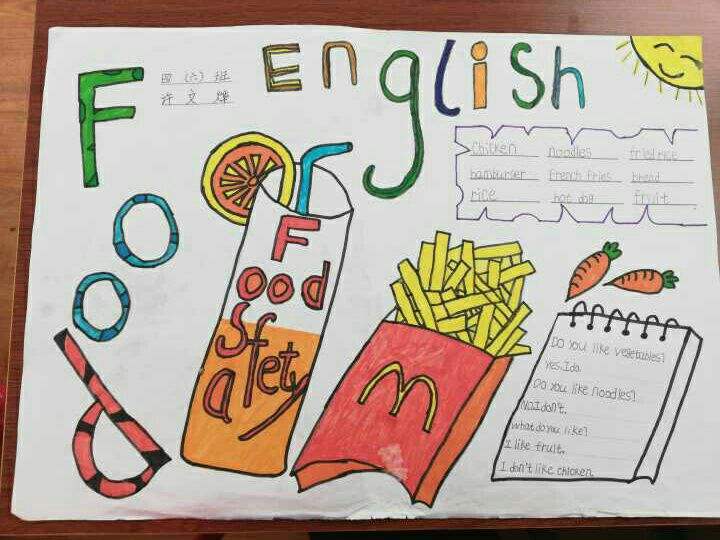 English
Food
四（六）班
许文烨
chicken noodles fried rice
hamburger french fries bread
rice hot dog fruit
Food
Safety
M
Do you like vegetables?
Yes, I do.
Do you like noodles?
No, I don't.
What do you like?
I like fruit.
I don't like chicken.